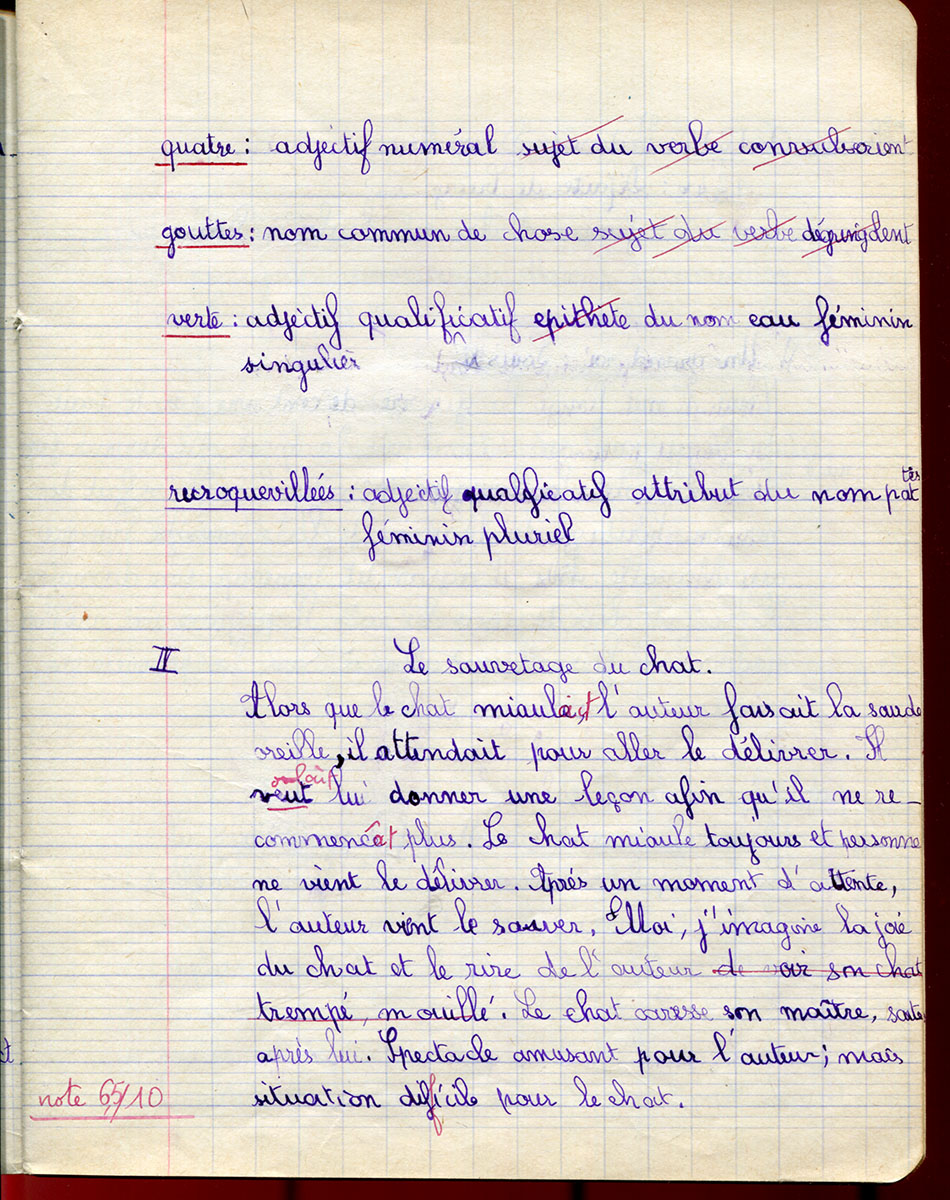 quatre : adjectif numéral sujet du verbe convulserient
gouttes : nom commun de chose sujet du verbe dégringolent
verte : adjectif qualificatif epithète du nom eau féminin
singulier
recroquevillées : adjectif qualificatif attribut du nom pattes
féminin pluriel
II Le sauvetage du chat.
Alors que le chat miaulait l'auteur faisait la sourde
oreille, il attendait pour aller le délivrer. Il
voulait
veut lui donner une leçon afin qu'il ne re-
commençât plus. Le chat miaule toujours et personne
ne vient le délivrer. Après un moment d'attente,
l'auteur vient le sauver. Moi, j'imagine la joie
du chat et le rire de l'auteur de voir son chat
trempé, mouillé. Le chat caresse son maître, saute
après lui. Spectacle amusant pour l'auteur ; mais
situation difficile pour le chat.
note 6,5/10